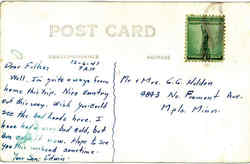 POST CARD
CORRESPONDENCE
12-2-47
7 AM
Dear Folks:
Well, I'm quite a ways from
home this trip. Nice country
out this way. Wish you could
see the bad lands here. I
have had nice but cold, but
am now. Hope to see
you this weekend sometime.
Your Son: Edwin
Mr & Mrs. C.G. Weldon
4843 No Fremont Ave.
Mpls. Minn.